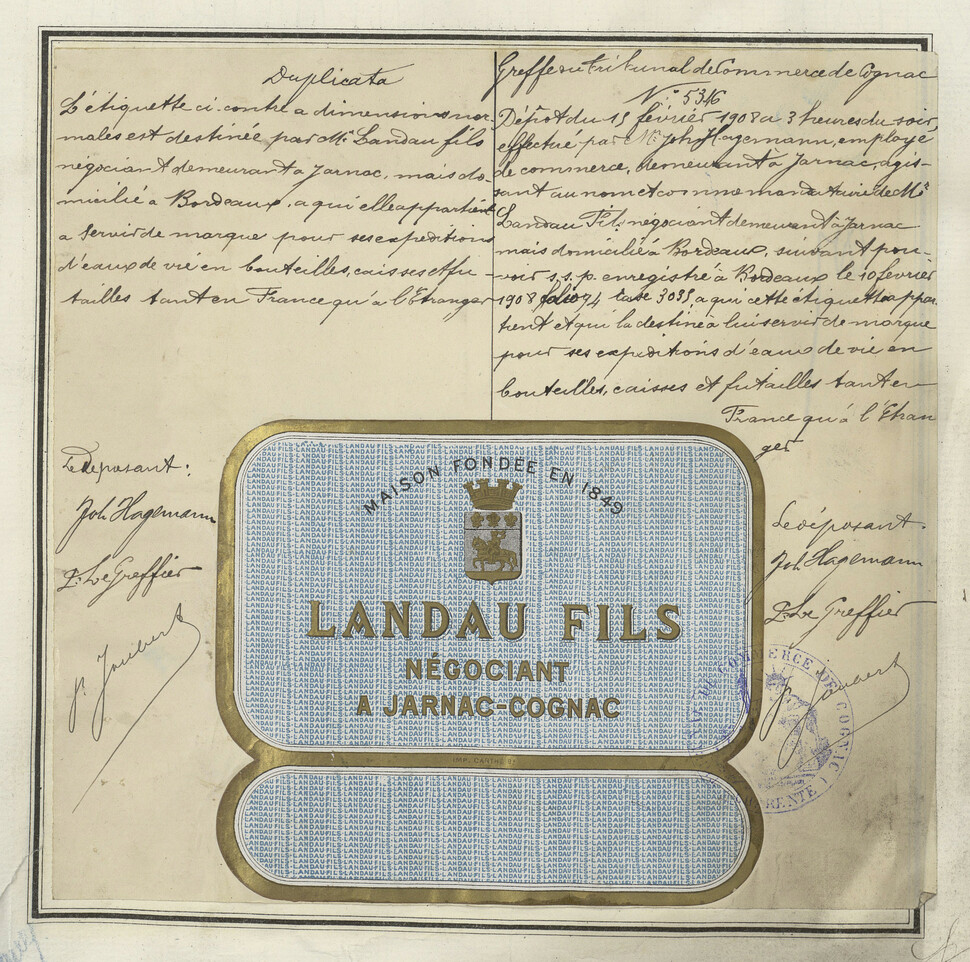 Duplicata
L'étiquette ci-contre a dimensions nor-
males est destinée par Mr. Landau fils
négociant demeurant à Jarnac, mais do-
micilié à Bordeaux, a qui elle appartient
a servir de marque pour ses expeditions
d'eaux de vie en bouteilles, caisses et fu-
tailles tant en France qu'à l'Etranger
Le deposant:
Joh Hagemann
P. Le Greffier
Greffe du Tribunal de Commerce de Cognac
N° 5316
Dépôt du 15 février 1908 a 3 heures du soir,
effectué par Mr. Joh Hagemann, employé
de commerce, demeurant à Jarnac, agis-
sant au nom et comme mandataire de Mr
Landau Fils, négociant demeurant à Jarnac
mais domicilié à Bordeaux, suivant pou-
voir s.s.p. enregistré à Bordeaux le 10 février
1908 folio 74 case 3035, a qui cette étiquette appar-
tient et qui la destine à lui servir de marque
pour ses expeditions d'eaux de vie en
bouteilles, caisses et futailles tant en
France qu'à l'Etran
ger
Le déposant.
Joh. Hagemann
P. Le Greffier
MAISON FONDÉE EN 1849
LANDAU FILS
NÉGOCIANT
A JARNAC-COGNAC
IMP. CARTHÉ
COMMERCE DE COGNAC